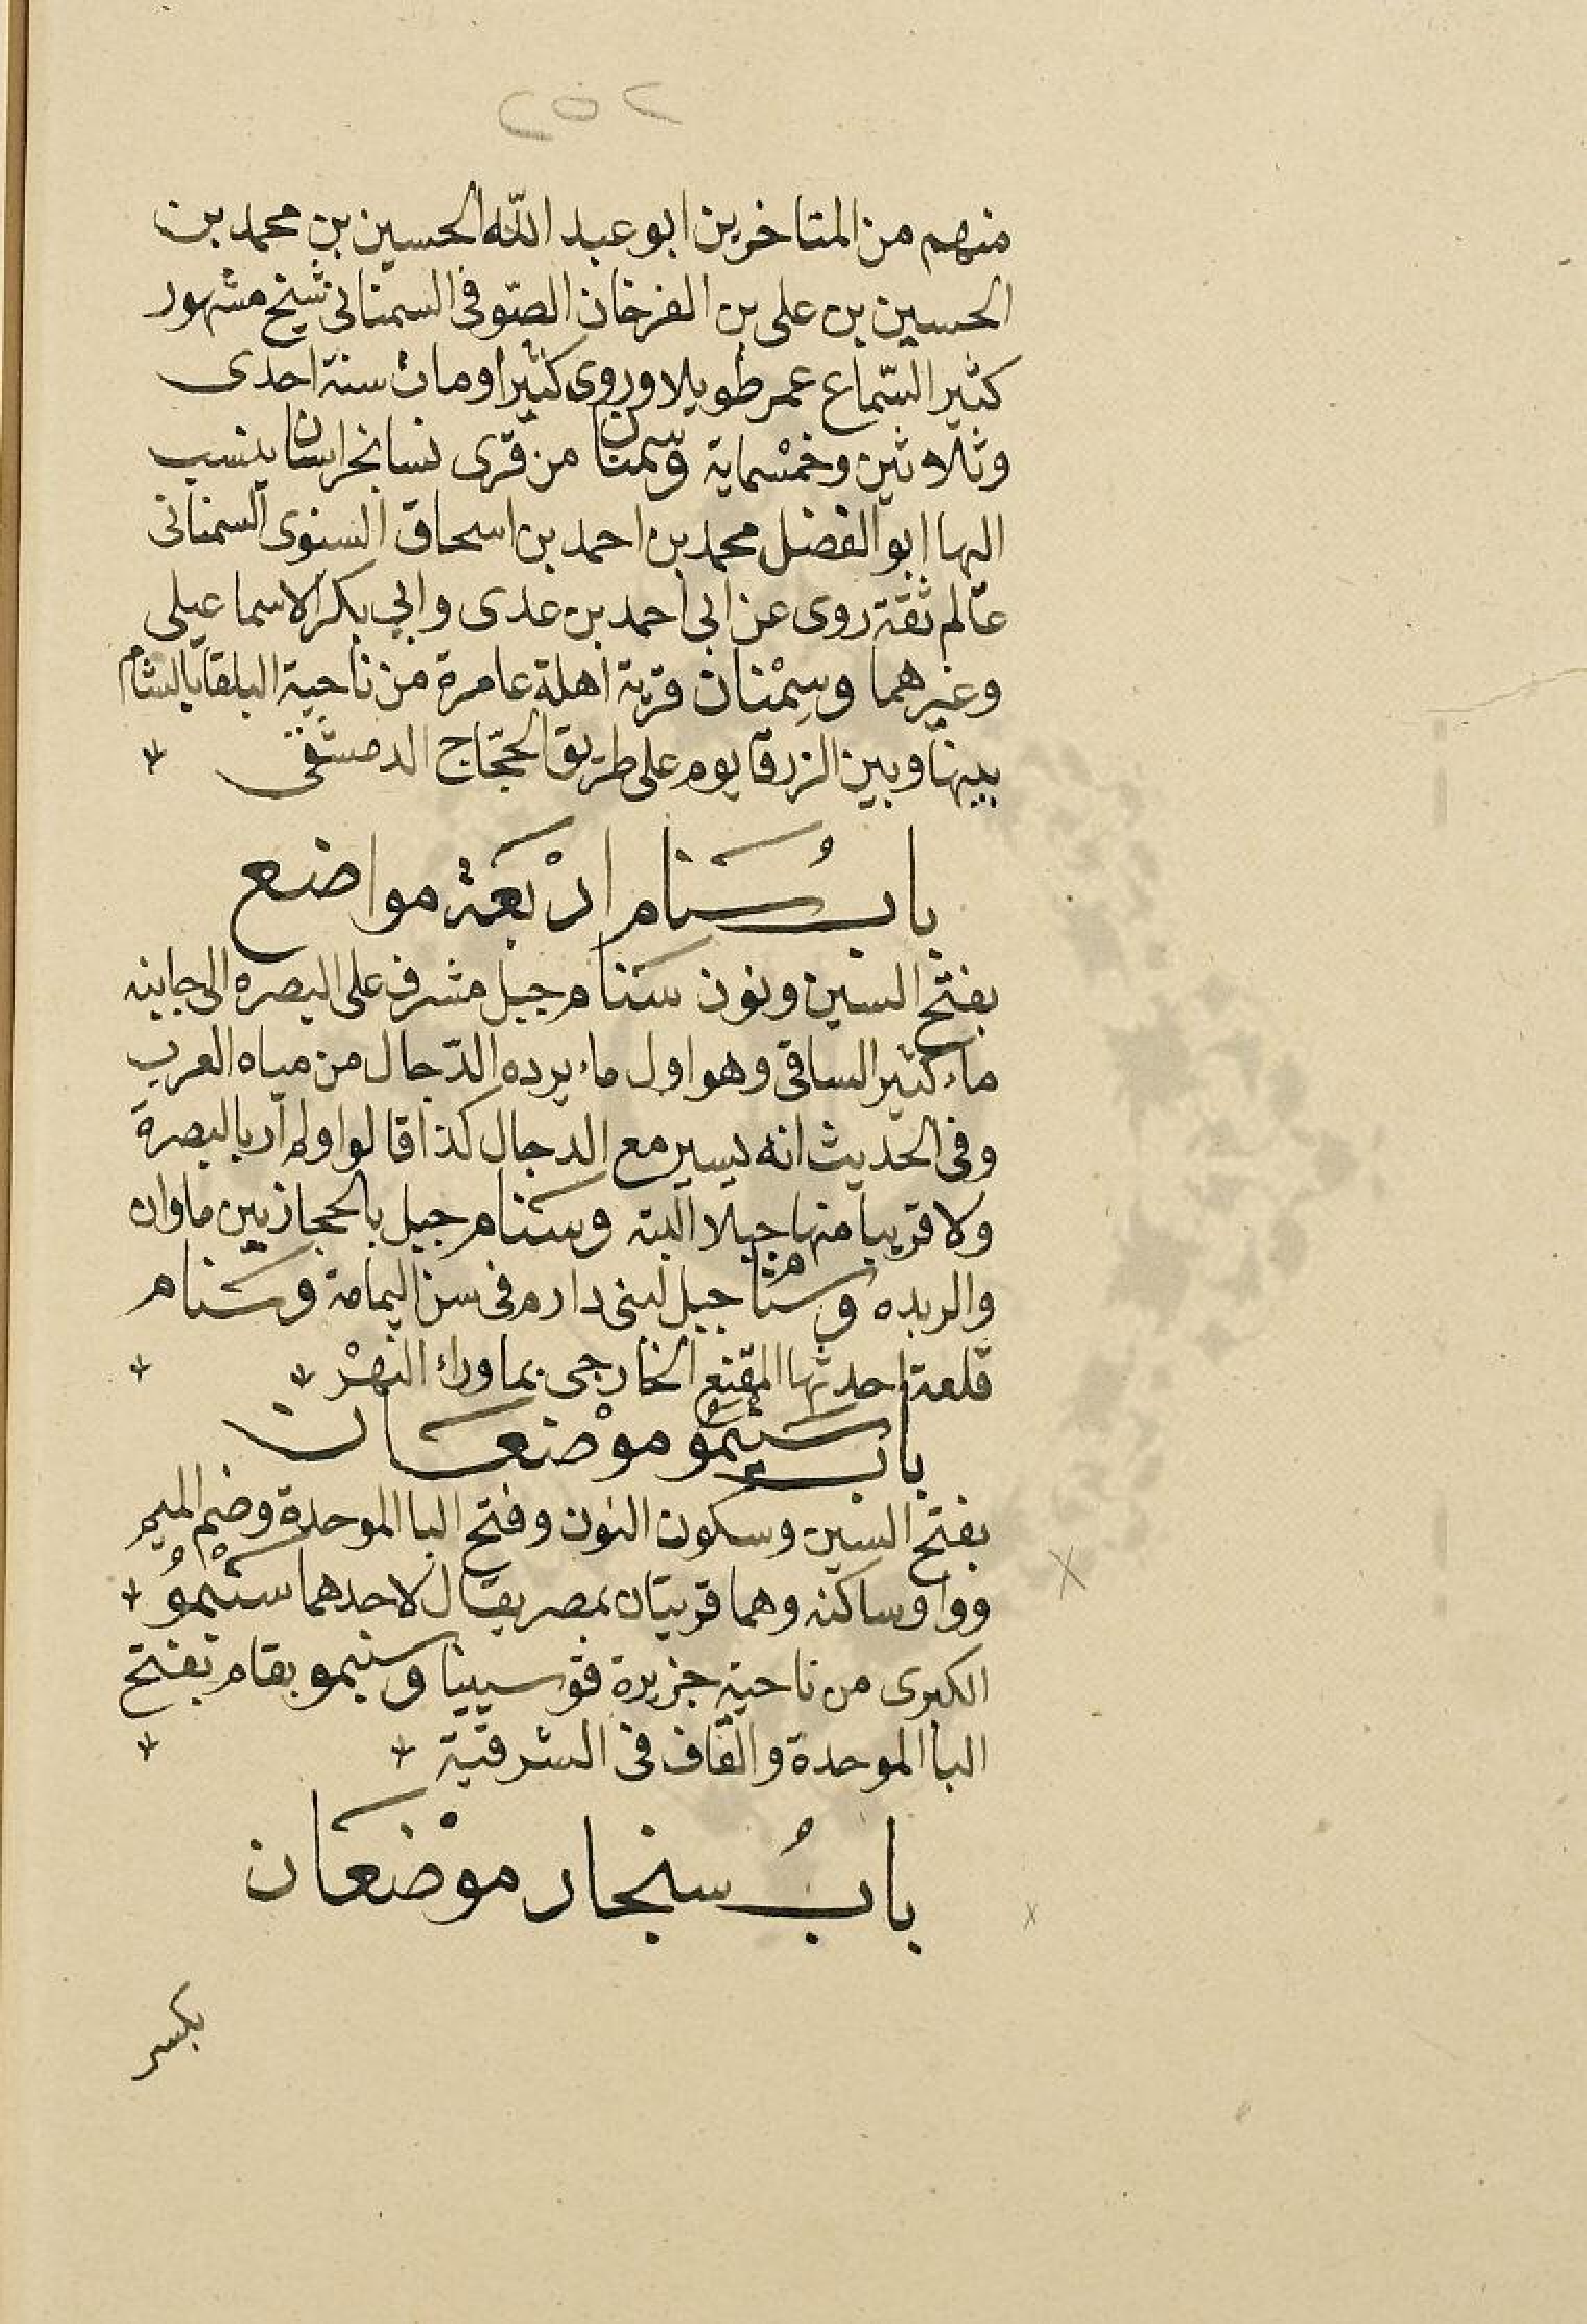 ٢٥٢
منهم من المتاخرين ابو عبد الله الحسين بن محمد بن
الحسين بن على بن الفرخان الصّوفى السمنانى شيخ مشهور
كثير السّماع عمر طويلا وروى كثيرا ومات سنة احدى
وثلاثين وخمسماية وسمنان من قرى نسا بخراسان ينسب
اليها ابو الفضل محمد بن احمد بن اسحاق النسوى السمنانى
عالم ثقة روى عن ابى احمد بن عدى وابي بكر الاسماعيلى
وغيرهما وسِمْنان قرية اهلة عامرة من ناحية البلقا بالشام
بينها وبين الزرقا يوم على طريق الحجّاج الدمشقى
بابُ سَنام ارْبَعَة مواضع
بفتح السين ونون سَنام جبل مشرف على البصره الى جانبه
ماء كثير السافى وهو اول ماء يرده الدّجال من مياه العرب
وفى الحديث انه يسير مع الدجال كذا قالوا ولم ار بالبصرة
ولا قريبا منها جبلا البته وسَنام جبل بالحجاز بين ماوان
والربده وسنام جبل لبنى دارم فى سن اليمامة وسَنام
قلعة احدثها المقنع الخارجى بما وراء النهْر
باب سَنْبَمُو موْضعَان
بفتح السين وسكون النون وفتح البا الموحدة وضم الميم
وواو ساكنه وهما قريتان بمصر يقال لاحدهما سَنْبمُو
الكبرى من ناحية جزيرة قوسينيا وسنبمو بقام بفتح
البا الموحدة والقاف فى الشرقية
بابُ سنجار موْضعَان
بكسر